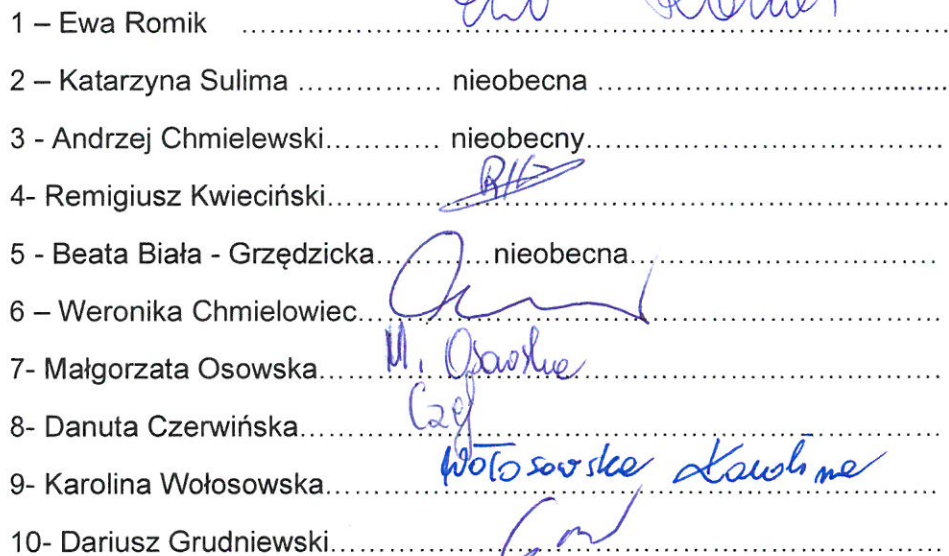 1 – Ewa Romik ……………………………………………………………
2 – Katarzyna Sulima …………… nieobecna …………………………...........
3 - Andrzej Chmielewski………… nieobecny……………………………………
4- Remigiusz Kwieciński……………………………………………………………
5 - Beata Biała - Grzędzicka…………nieobecna………………………………
6 – Weronika Chmielowiec……………………………………………………
7- Małgorzata Osowska……M. Osowska……………………………………
8- Danuta Czerwińska………………………………………………………
9- Karolina Wołosowska……Wołosowska Karolina……………………
10- Dariusz Grudniewski……………………………………………………